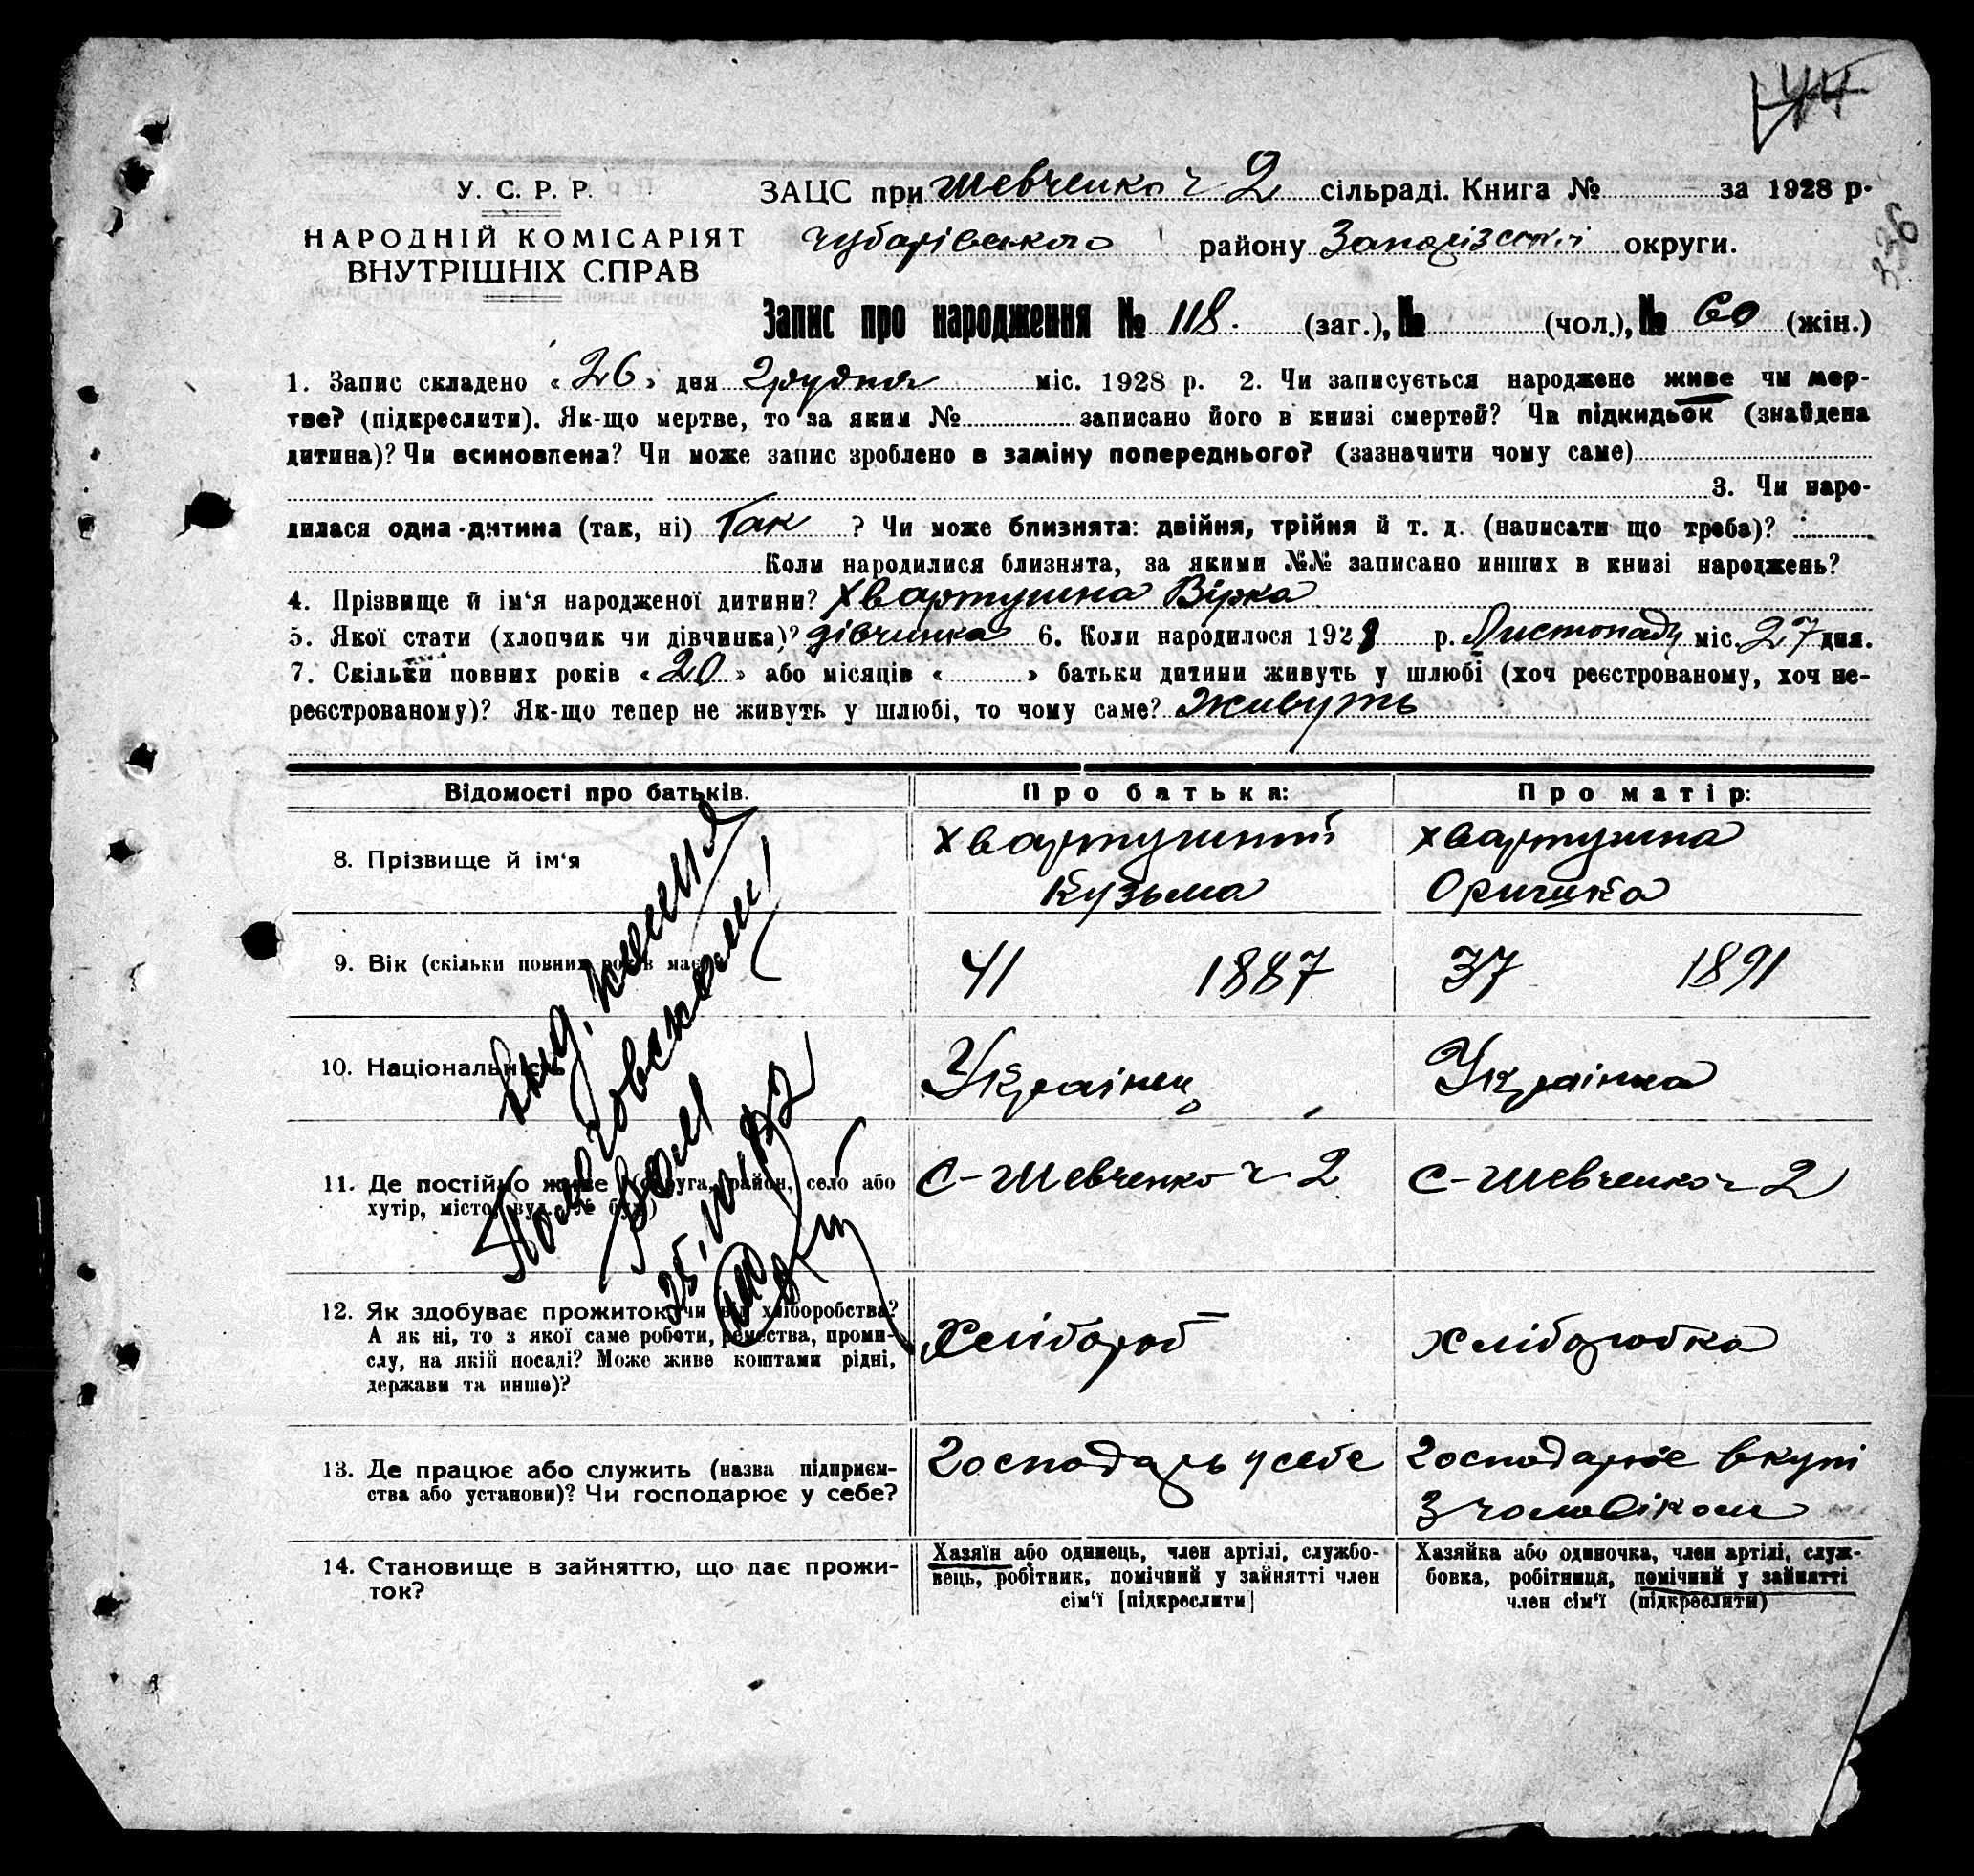 У. С. Р. Р.
НАРОДНІЙ КОМІСАРІЯТ
ВНУТРІШНІХ СПРАВ
ЗАЦС при Шевченко ч 2 сільраді. Книга № за 1928 р.
Чубарівського району Запорізської округи.
336
Запис про народження № 118. (заг.), № (чол.), № 60 (жін.)
1. Запис складено « 26 » дня Грудня міс. 1928 р. 2. Чи записується народжене живе чи мер-
тве? (підкреслити). Як-що мертве, то за яким № записано його в книзі смертей? Чи підкидьок (знайдена
дитина)? Чи всиновлена? Чи може запис зроблено в заміну попереднього? (зазначити чому саме)
3. Чи наро-
дилася одна дитина (так, ні) Так ? Чи може близнята: двійня, трійня й т. д. (написати що треба)?
Коли народилися близнята, за якими №№ записано инших в книзі народжень?
4. Прізвище й ім'я народженої дитини? Хвартушна Вірка
5. Якої стати (хлопчик чи дівчинка)? дівчинка 6. Коли народилося 1928 р. Листопаду міс. 27 дня.
7. Скільки повних років « 20 » або місяців « » батьки дитини живуть у шлюбі (хоч реєстрованому, хоч не-
реєстрованому)? Як-що тепер не живуть у шлюбі, то чому саме? Живуть
Відомості про батьків. Про батька: Про матір:
8. Прізвище й ім'я Хвартушній Хвартушна
Кузьма Оришка
9. Вік (скільки повних років має)? 41 1887 37 1891
10. Національність Українец Українка
11. Де постійно живе (округа, район, село або С-Шевченко ч 2 С-Шевченко ч 2
хутір, місто, вул., № буд.)
12. Як здобуває прожиток чи від хліборобства? Хлібороб Хліборобка
А як ні, то з якої саме роботи, ремества, проми-
слу, на якій посаді? Може живе коштами рідні,
держави та инше)?
13. Де працює або служить (назва підприєм- Господарь у себе Господарює вкупі
ства або установи)? Чи господарює у себе? З чоловіком
14. Становище в зайняттю, що дає прожи-
ток?
Хазяїн або одинець, член артілі, службо-
вець, робітник, помічний у зайнятті член
сім'ї [підкреслити]
Хазяйка або одиночка, член артілі, служ-
бовка, робітниця, помічний у зайнятті
член сім'ї (підкреслити)